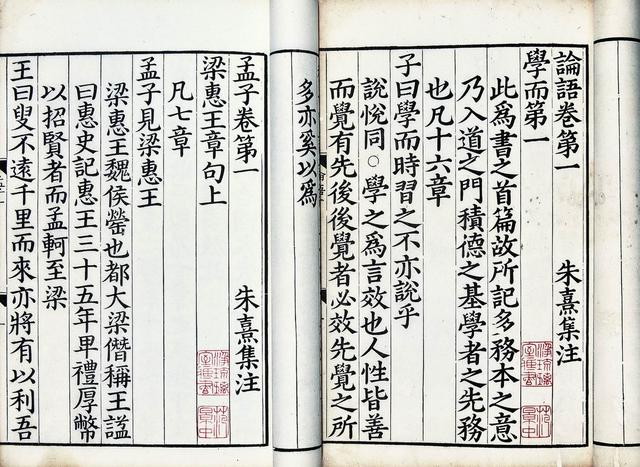 論語卷第一　朱熹集注
學而第一
此爲書之首篇故所記多務本之意
乃入道之門積德之基學者之先務
也凡十六章
子曰學而時習之不亦說乎
說悅同○學之爲言效也人性皆善
而覺有先後後覺者必效先覺之所
范景中
多亦奚以爲
孟子卷第一　朱熹集注
梁惠王章句上
凡七章
孟子見梁惠王
梁惠王魏侯罃也都大梁僭稱王謚
曰惠史記惠王三十五年卑禮厚幣
以招賢者而孟軻至梁
王曰叟不遠千里而來亦將有以利吾
范景中